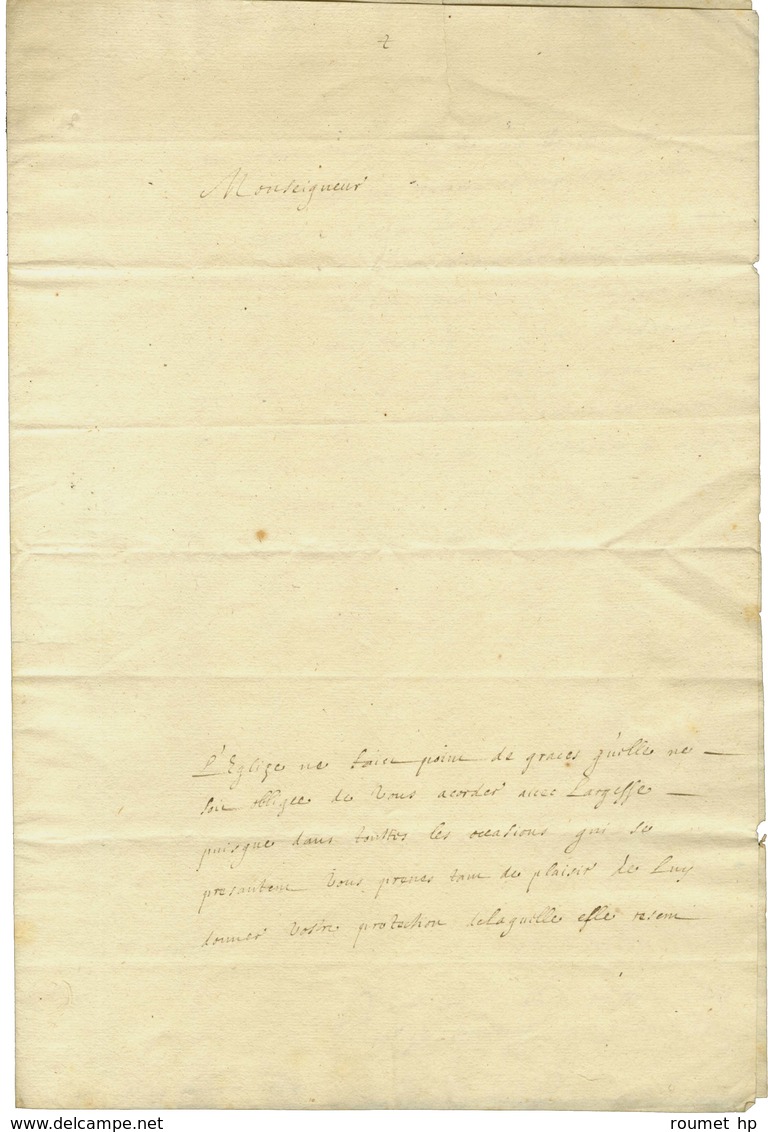 Monseigneur
L'Eglize ne faict point de graces qu'elle ne
soit obligee de vous acorder avec largesse
puisque dans touttes les occasions qui se
presantent vous prenes tant de plaisir de luy
donner vostre protection de laquelle elle resent
www.delcampe.net
roumet hp